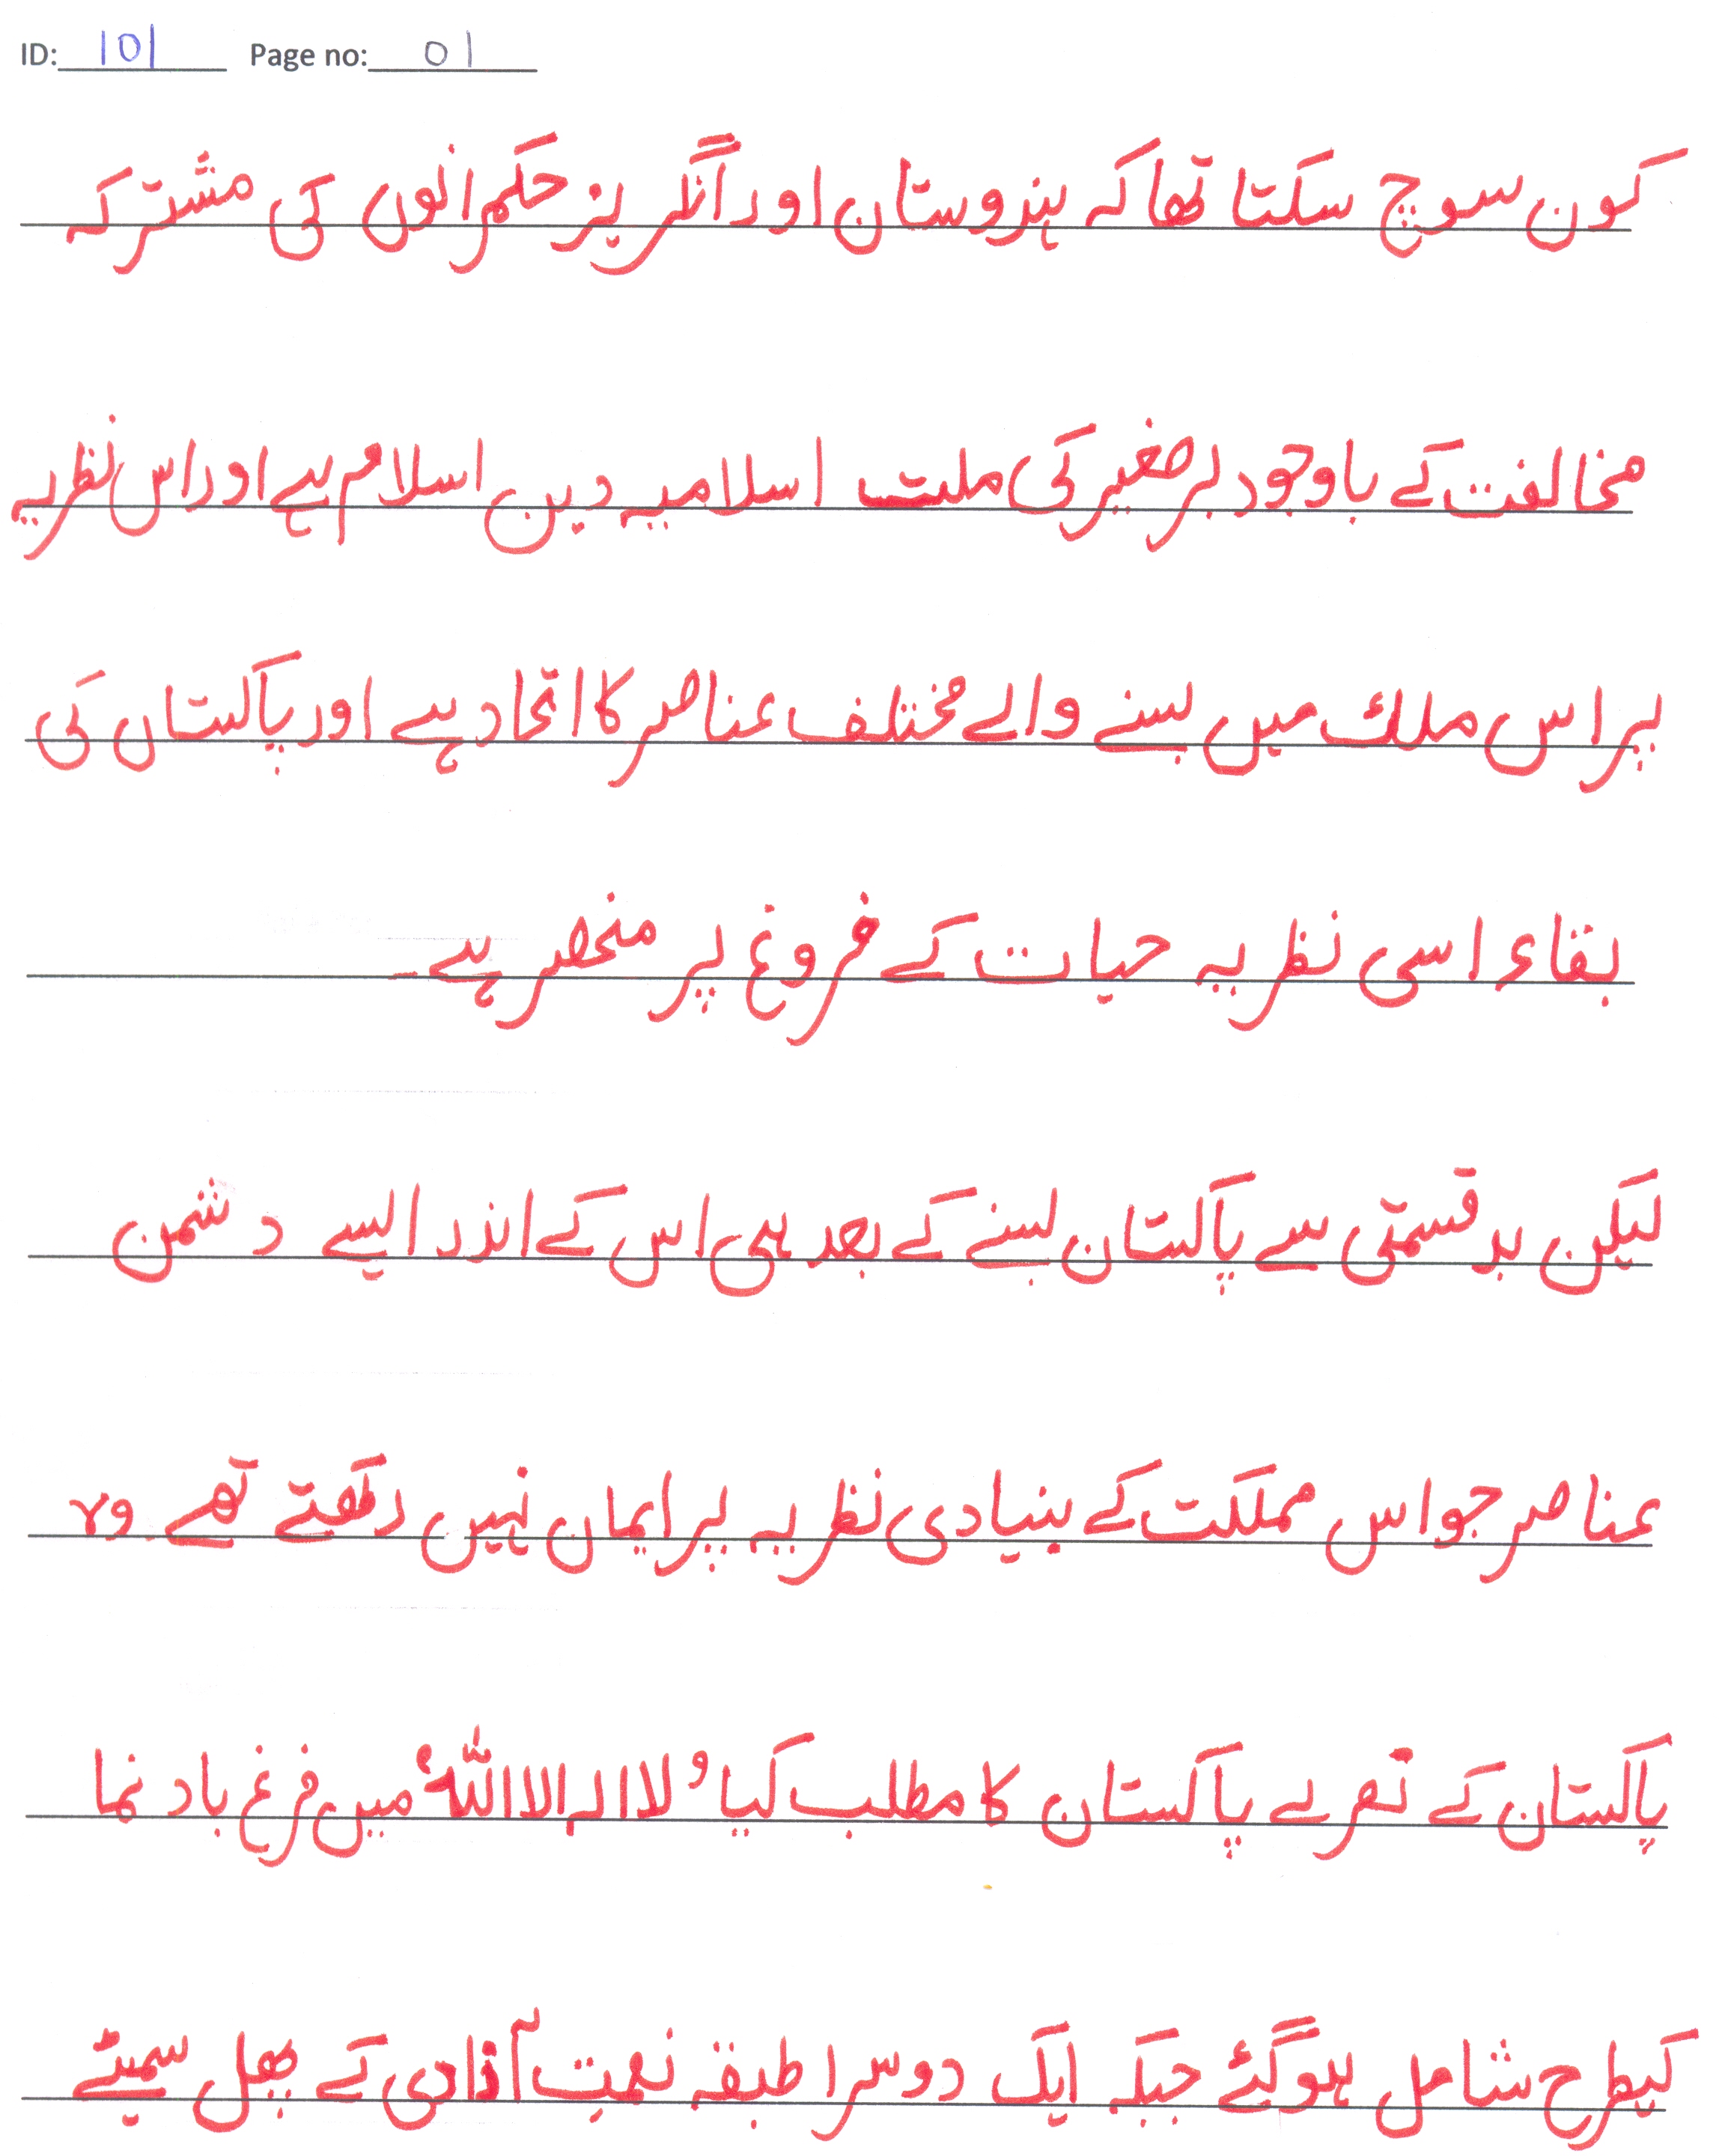 ID: 101 Page no: 01
کون سوچ سکتا تھا کہ ہندوستان اور انگریز حکمرانوں کی مشترکہ
مخالفت کے باوجود برصغیر کی ملت اسلامیہ دین اسلام ہے اور اس نظریہ
پر اس ملک میں بسنے والے مختلف عناصر کا اتحاد ہے اور پاکستان کی
بقاء اسی نظریہ حیات کے فروغ پر منحصر ہے۔
لیکن بدقسمتی سے پاکستان بسنے کے بعد ہی اس کے اندر ایسے دشمن
عناصر جو اس مملکت کے بنیادی نظریہ پر ایمان نہیں رکھتے تھے وہ
پاکستان کے نعرے پاکستان کا مطلب کیا ’لا الہ الا اللہ‘ میں مرغ باد نما
کیطرح شامل ہوگئے جبکہ ایک دوسرا طبقہ نعمت آذادی کے پھل سمیٹے